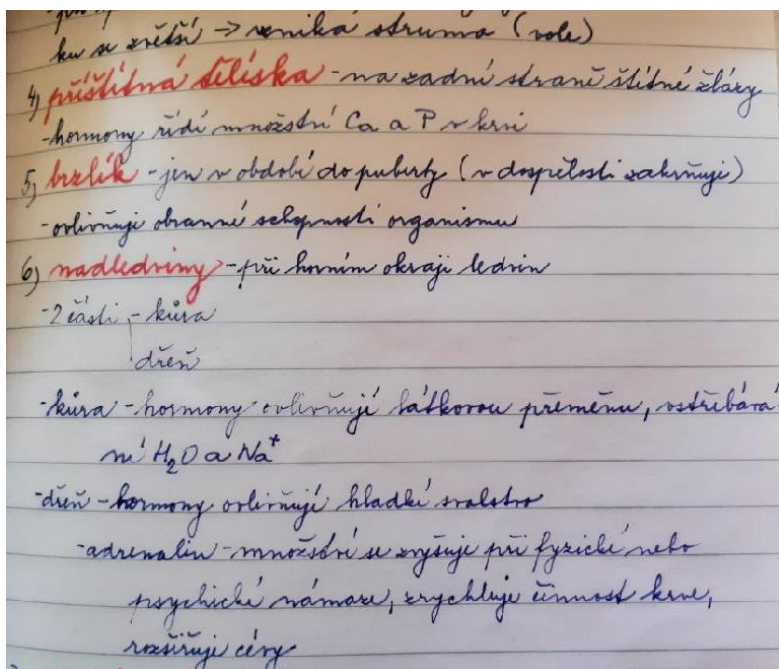 ku se zvětší → vzniká struma (vole)
4) příštítná tělíska - na zadní straně štítné žlázy
- hormony řídí množství Ca a P v krvi
5) brzlík - jen v období do puberty (v dospělosti zakrňuje)
- ovlivňuje obranné schopnosti organismu
6) nadledviny - při horním okraji ledvin
- 2 části - kůra
dřeň
- kůra - hormony ovlivňují látkovou přeměnu, vstřebává
ní H₂O a Na⁺
- dřeň - hormony ovlivňují hladké svalstvo
- adrenalin - množství se zvyšuje při fyzické nebo
psychické námaze, zrychluje činnost krve,
rozšiřuje cévy